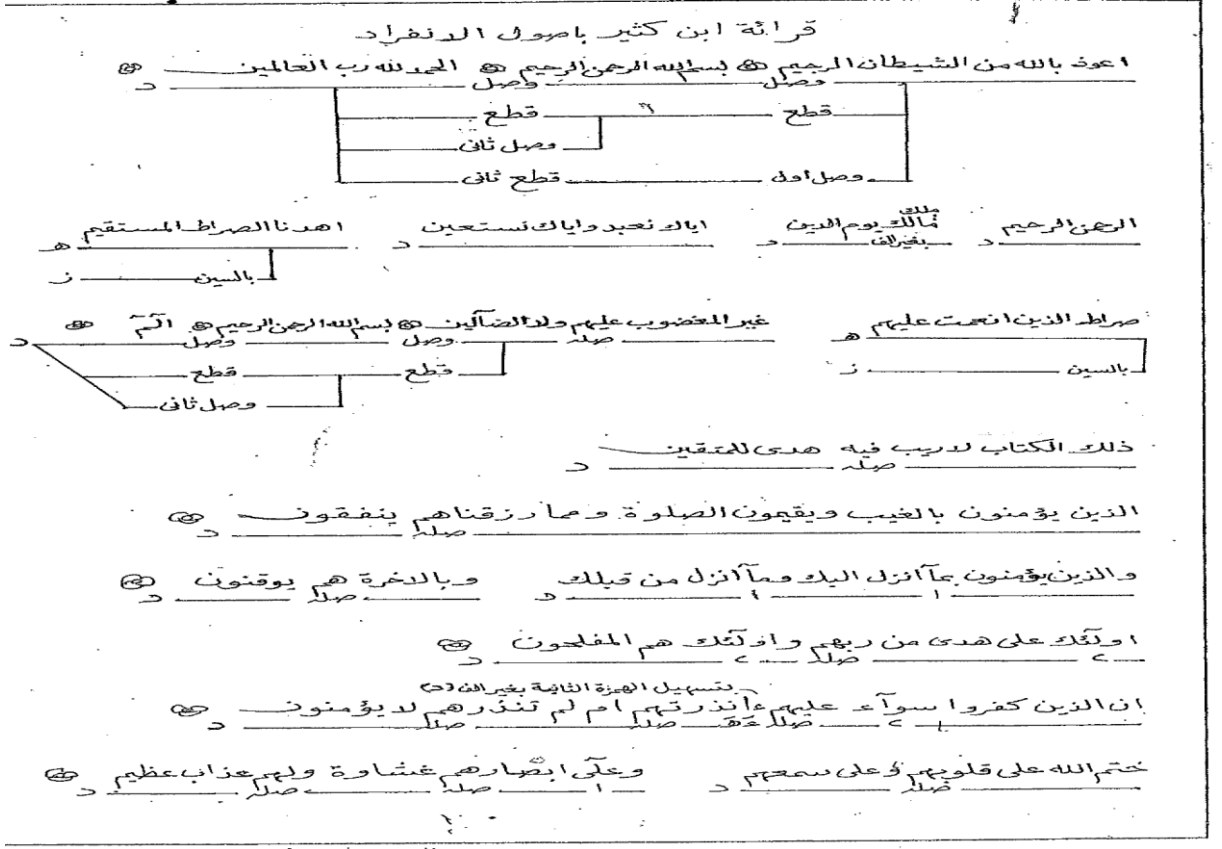 قرائة ابن كثير باصول الانفراد
اعوذ بالله من الشيطان الرجيم بسم الله الرحمن الرحيم الحمد لله رب العالمين
وصل وصل د
قطع قطع
وصل ثانى
وصل اول قطع ثانى
ملك
الرحمن الرحيم مالك يوم الدين اياك نعبد واياك نستعين اهدنا الصراط المستقيم
د بغير الف د د ه
بالسين ز
صراط الذين انعمت عليهم غير المغضوب عليهم ولا الضآلين بسم الله الرحمن الرحيم الٓمٓ
ه صله وصل وصل د
بالسين ز قطع قطع
وصل ثانى
ذلك الكتاب لاريب فيه هدى للمتقين
صله د
الذين يؤمنون بالغيب ويقيمون الصلوة ومما رزقناهم ينفقون
صله د
والذين يؤمنون بمآ انزل اليك ومآ انزل من قبلك وبالاخرة هم يوقنون
١ ١ د صله د
اولٓئك على هدى من ربهم واولٓئك هم المفلحون
٢ صله ٢ د
بتسهيل الهمزة الثانية بغير الف (د)
ان الذين كفروا سوآء عليهم ءانذرتهم ام لم تنذرهم لايؤمنون
٢ صله صله صله د
ختم الله على قلوبهم وعلى سمعهم وعلٓى ابصارهم غشاوة ولهم عذاب عظيم
صله د ١ صله صله د